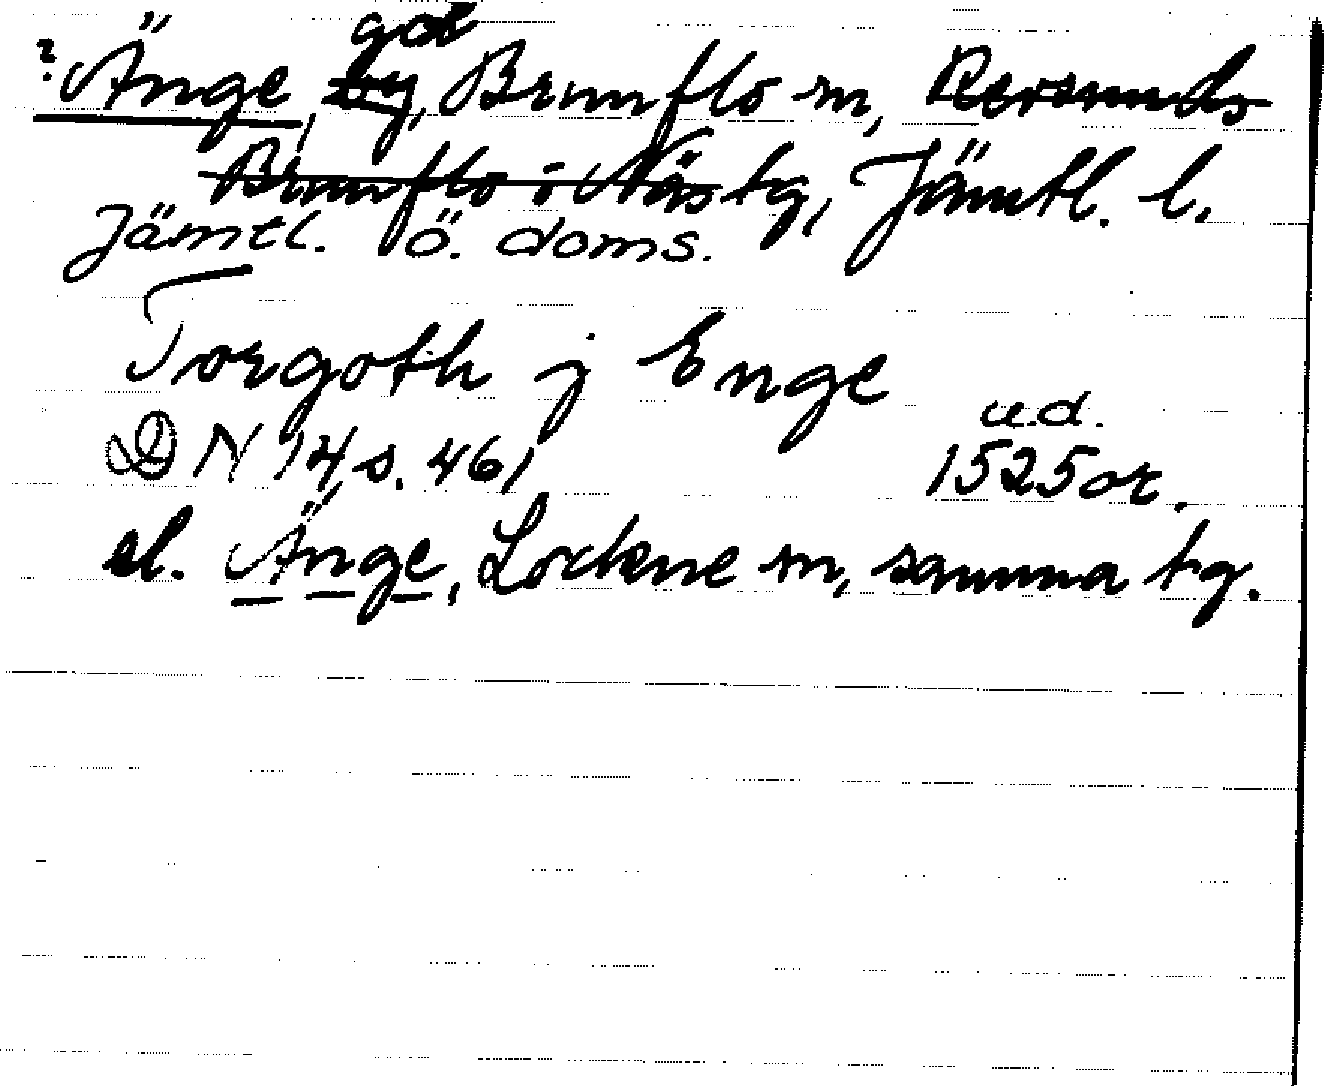 går
? Änge, by, Brunflo sn, Revsunds
Brunflo o Näs tg, Jämtl. l.
Jämtl. ö. doms.
Torgoth j Enge
u.d.
DN 14 s. 461 1525 ot.
el. Änge, Lockne sn, samma tg.